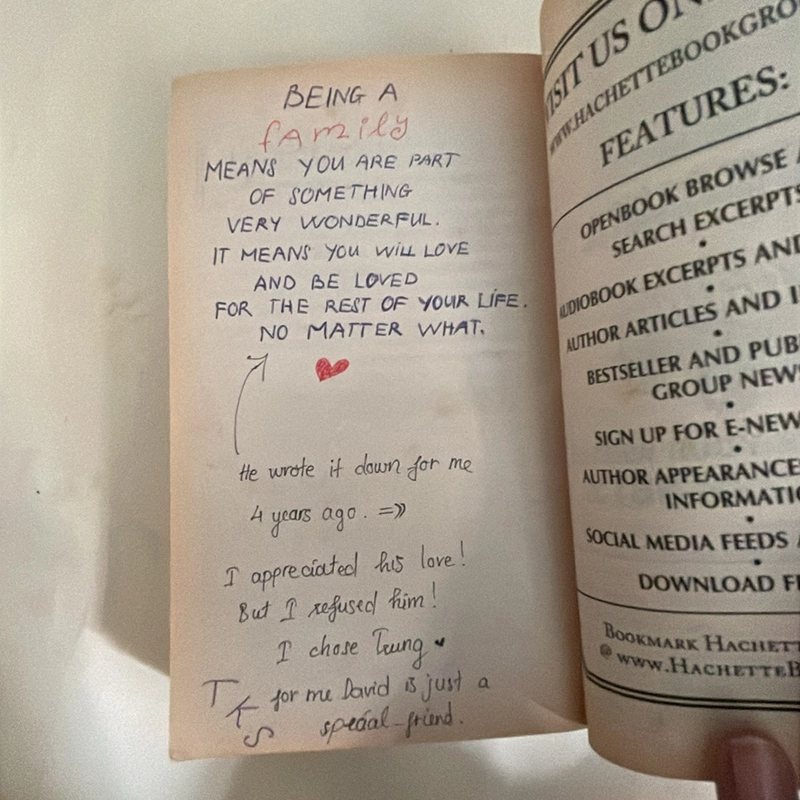 BEING A
fAmily
MEANS YOU ARE PART
OF SOMETHING
VERY WONDERFUL.
IT MEANS YOU WILL LOVE
AND BE LOVED
FOR THE REST OF YOUR LIFE.
NO MATTER WHAT.
He wrote it down for me
4 years ago. =>>
I appreciated his love!
But I refused him!
I chose Trung
TKS for me David is just a
special-friend.
VISIT US ON
WWW.HACHETTEBOOKGRO
FEATURES:
OPENBOOK BROWSE
SEARCH EXCERPTS
•
AUDIOBOOK EXCERPTS AND
•
AUTHOR ARTICLES AND
•
BESTSELLER AND PUB
GROUP NEWS
•
SIGN UP FOR E-NEW
•
AUTHOR APPEARANCE
INFORMATIO
•
SOCIAL MEDIA FEEDS
•
DOWNLOAD
BOOKMARK HACHETT
@ WWW.HACHETTEB